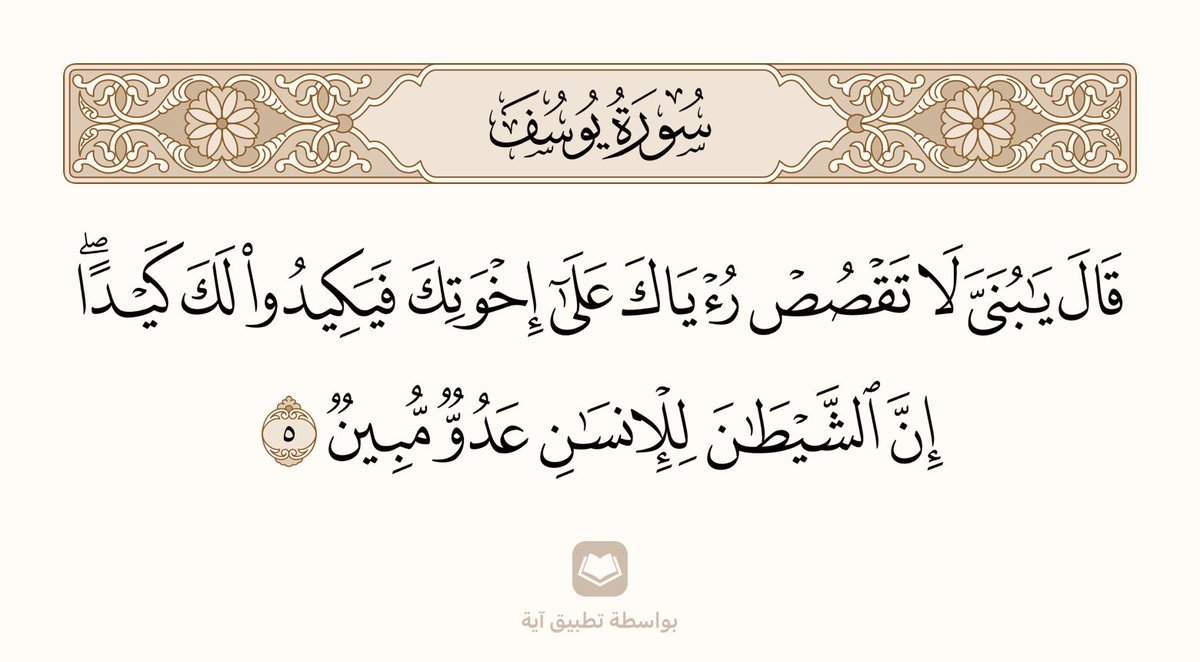 سُورَةُ يُوسُفَ
قَالَ يَـٰبُنَىَّ لَا تَقْصُصْ رُءْيَاكَ عَلَىٰٓ إِخْوَتِكَ فَيَكِيدُوا۟ لَكَ كَيْدًا ۖ
إِنَّ ٱلشَّيْطَـٰنَ لِلْإِنسَـٰنِ عَدُوٌّ مُّبِينٌ ٥
بواسطة تطبيق آية